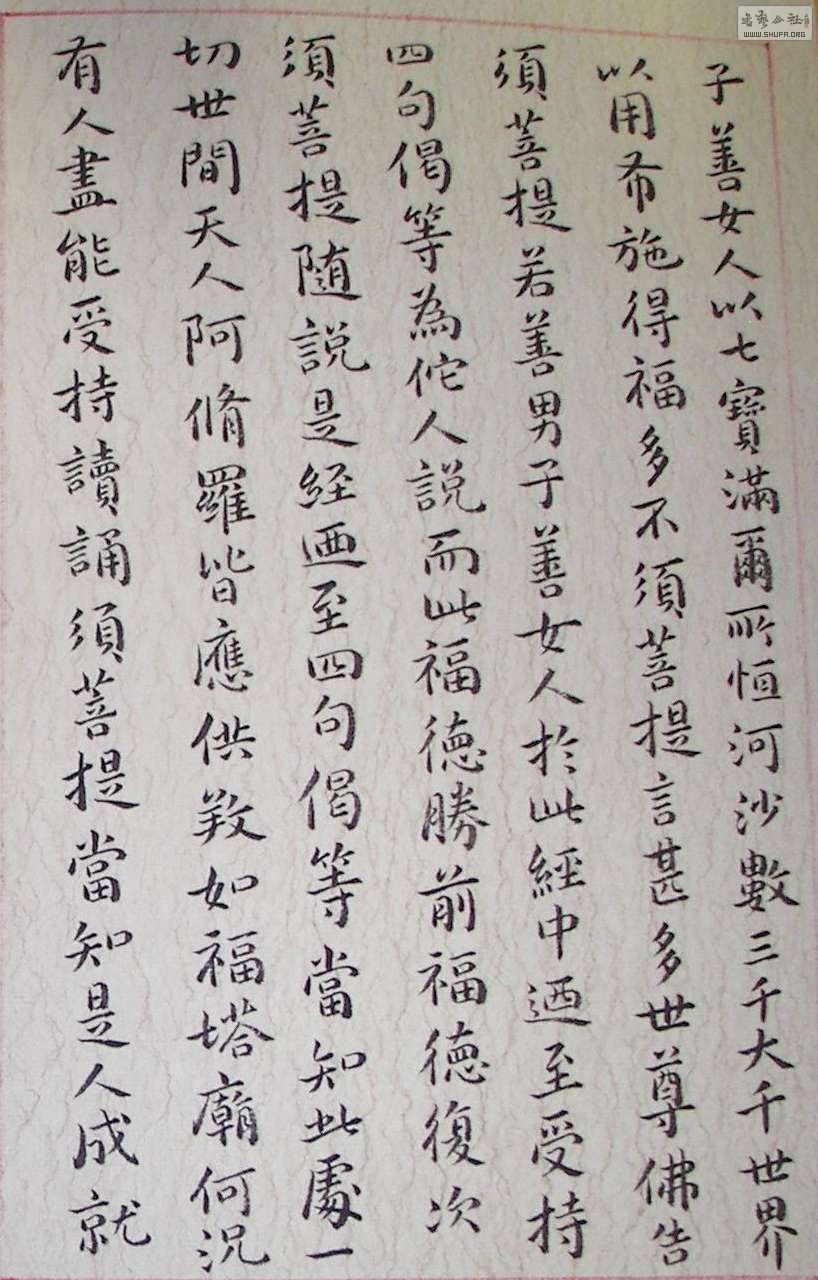 子善女人以七寶滿爾所恒河沙數三千大千世界
以用布施得福多不須菩提言甚多世尊佛告
須菩提若善男子善女人於此經中廼至受持
四句偈等為佗人說而此福德勝前福德復次
須菩提隨說是经廼至四句偈等當知此處一
切世間天人阿脩羅皆應供敎如福塔廟何況
有人盡能受持讀誦須菩提當知是人成就
WWW.SHUFA.ORG